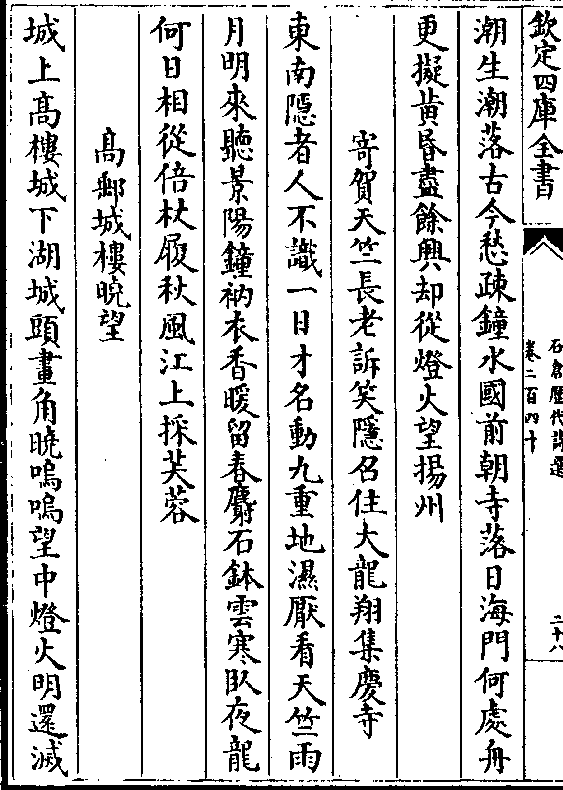 欽定四庫全書
石倉歷代詩選
卷二百四十
二十八
潮生潮落古今愁疎鐘水國前朝寺落日海門何處舟
更擬黄昏盡餘興却從燈火望揚州
寄賀天竺長老訴笑隱名住大龍翔集慶寺
東南隱者人不識一日才名動九重地濕厭看天竺雨
月明來聽景陽鐘衲衣香暖留春麝石鉢雲寒卧夜龍
何日相從倍杖屨秋風江上採芙蓉
髙郵城樓曉望
城上髙樓城下湖城頭畫角曉嗚嗚望中燈火明還滅